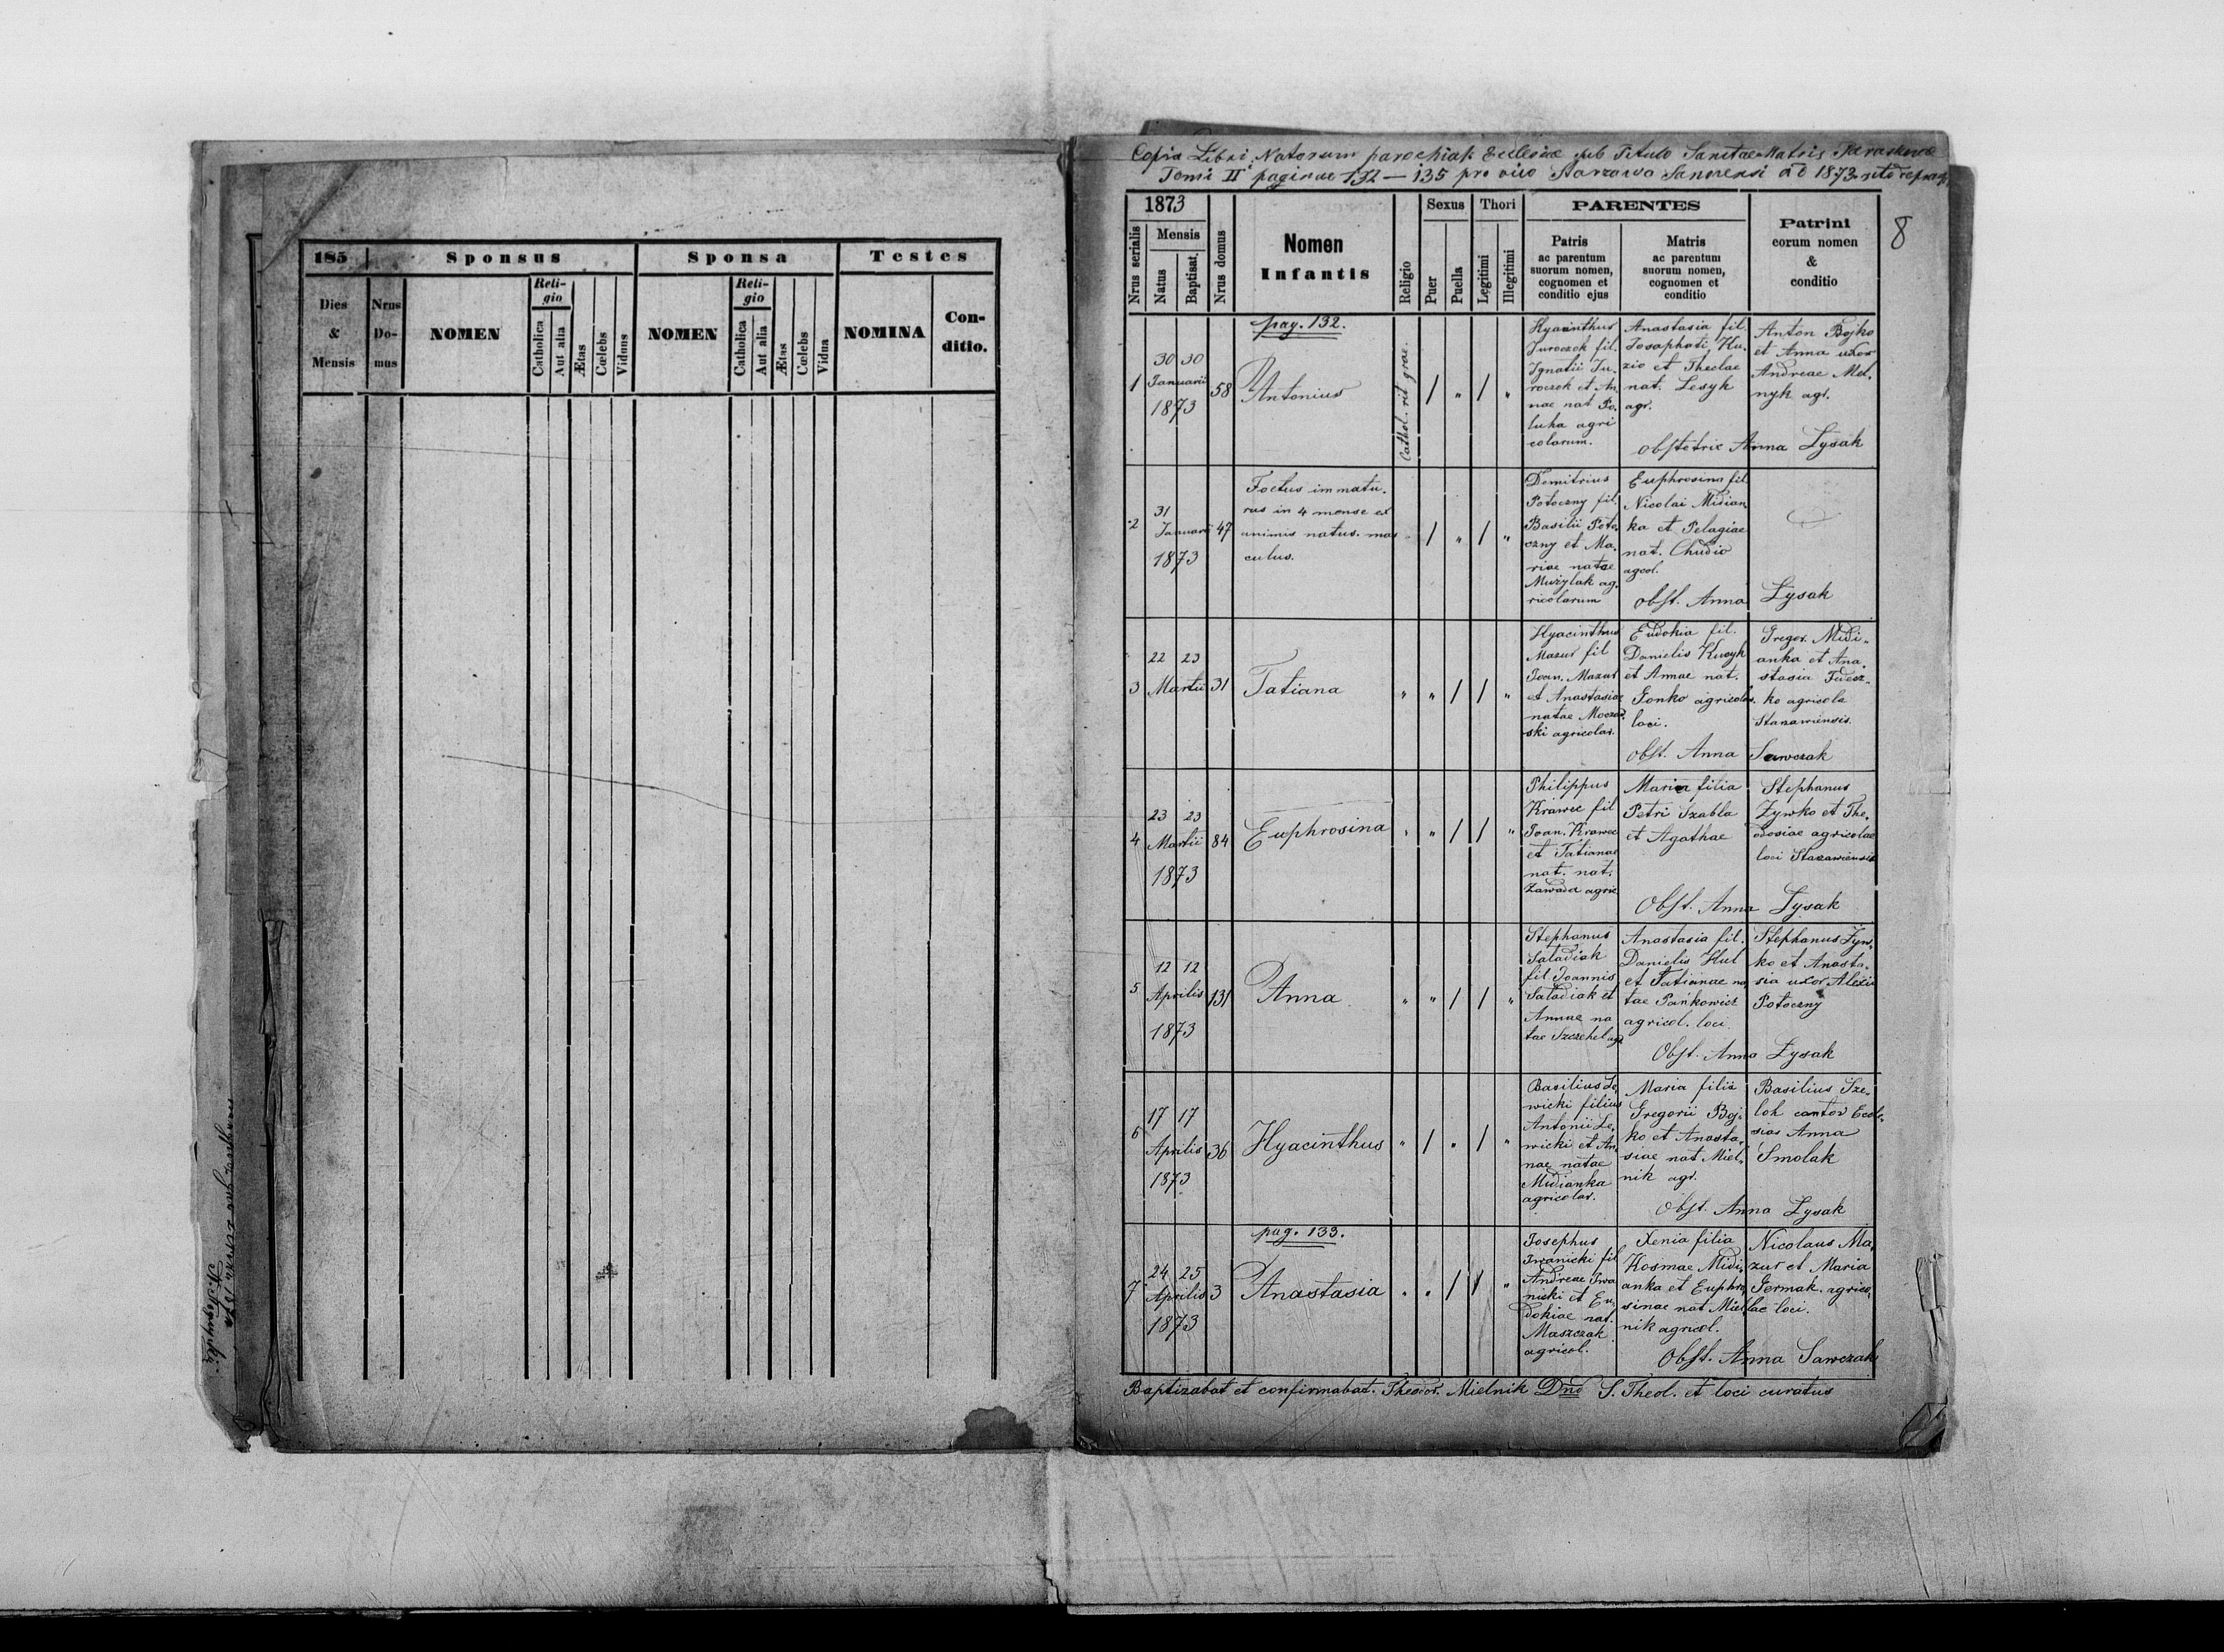 185
Sponsus
Sponsa
Testes
Dies & Mensis
Nrus Domus
NOMEN
Religio
Catholica
Aut alia
Ætas
Cœlebs
Viduus
NOMEN
Religio
Catholica
Aut alia
Ætas
Cœlebs
Vidua
NOMINA
Conditio.
Copia Libri Natorum parochial. Ecclesiæ sub Titulo Sanctae Matris Parasceve
Tomi II paginae 132 – 135 pro vico Starzawa Sanocensi a̅o̅ 1873
8
1873
Nrus serialis
Mensis
Natus
Baptisat.
Nrus domus
Nomen
Infantis
Religio
Sexus
Puer
Puella
Thori
Legitimi
Illegitimi
PARENTES
Patris
ac parentum
suorum nomen,
cognomen et
conditio ejus
Matris
ac parentum
suorum nomen,
cognomen et
conditio
Patrini
eorum nomen
&
conditio
pag. 132.
1
30 30
Januarii
1873
58
Antonius
Cathol. rit. grae.
/ " / "
Hyacinthus
Juroczek fil.
Ignatii Ju-
roczek et An-
nae nat Po-
luha agri
colarum.
Anastasia fil.
Josaphati Ku-
zio et Theclae
nat. Lesyk
agr.
Anton Bojko
et Anna uxor
Andreae Mel-
nyk agr.
Obstetric Anna Lysak
2
31
Januarii
1873
47
Foetus immatu-
rus in 4 mense ex
animis natus mas
culus.
/ " / "
Demitrius
Potoczny fil.
Basilii Poto-
czny et Ma-
riae natae
Muzylak ag-
ricolarum
Euphrosina fil
Nicolai Midian
ka et Pelagiae
nat. Chudio
agcol.
Obst. Anna Lysak
3
22 23
Martii
31
Tatiana
" " / / "
Hyacinthus
Mazur fil
Joan. Mazur
et Anastasiae
natae Moczar
ski agricolar.
Eudokia fil.
Danielis Kucyk
et Annae nat.
Gonko agricolar.
loci.
Gregor. Midi-
anka et Ana-
stasia Fedesz-
ko agricola
Starawiensis.
Obst. Anna Sawczak
4
23 23
Martii
1873
84
Euphrosina
" " / / "
Philippus
Krawec fil
Joan. Krawec
et Tatianae
nat. nat.
Zawada agric
Maria filia
Petri Szabla
et Agathae
Stephanus
Zywko et The-
odosiae agricolae
loci Starawiensis
Obst. Anna Lysak
5
12 12
Aprilis
1873
131
Anna
" " / / "
Stephanus
Saladiak
fil Joannis
Saladiak et
Annae na
tae Szczehel agr
Anastasia fil.
Danielis Hul
et Tatianae na
tae Pańkowicz
agricol. loci
Stephanus Zyw-
ko et Anasta-
sia uxor Alexii
Potoczny
Obst. Anna Lysak
6
17 17
Aprilis
1873
36
Hyacinthus
" / " / "
Basilius Le-
wicki filius
Antonii Le-
wicki et An-
nae natae
Midianka
agricolar.
Maria filia
Gregorii Boj-
ko et Anasta-
siae nat Miel-
nik agr.
Basilius Sze-
loh cantor Eccle-
siae Anna
Smolak
Obst. Anna Lysak
pag. 133.
7
24 25
Aprilis
1873
3
Anastasia
" " / / "
Josephus
Iwanicki fil
Andreae Iwa
nicki et Eu-
dokiae nat.
Maszczak
agricol.
Xenia filia
Kosmae Midi-
anka et Euphro-
sinae nat Miel
nik agricol.
Nicolaus Ma-
zur et Maria
Germak agrico-
lae loci.
Obst. Anna Sawczak
Baptizabat et confirmabat. Theodor. Mielnik Dnd S. Theol. et loci curatus